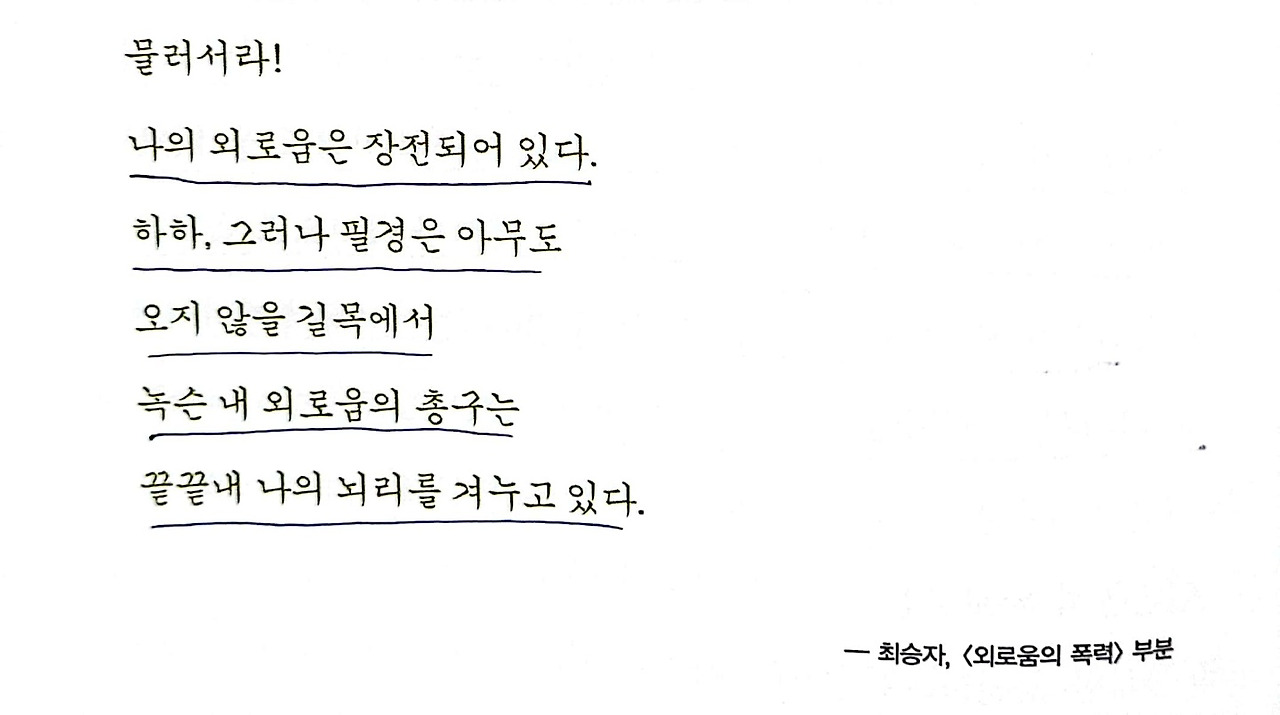 물러서라!
나의 외로움은 장전되어 있다.
하하, 그러나 필경은 아무도
오지 않을 길목에서
녹슨 내 외로움의 총구는
끝끝내 나의 뇌리를 겨누고 있다.
— 최승자, 〈외로움의 폭력〉 부분